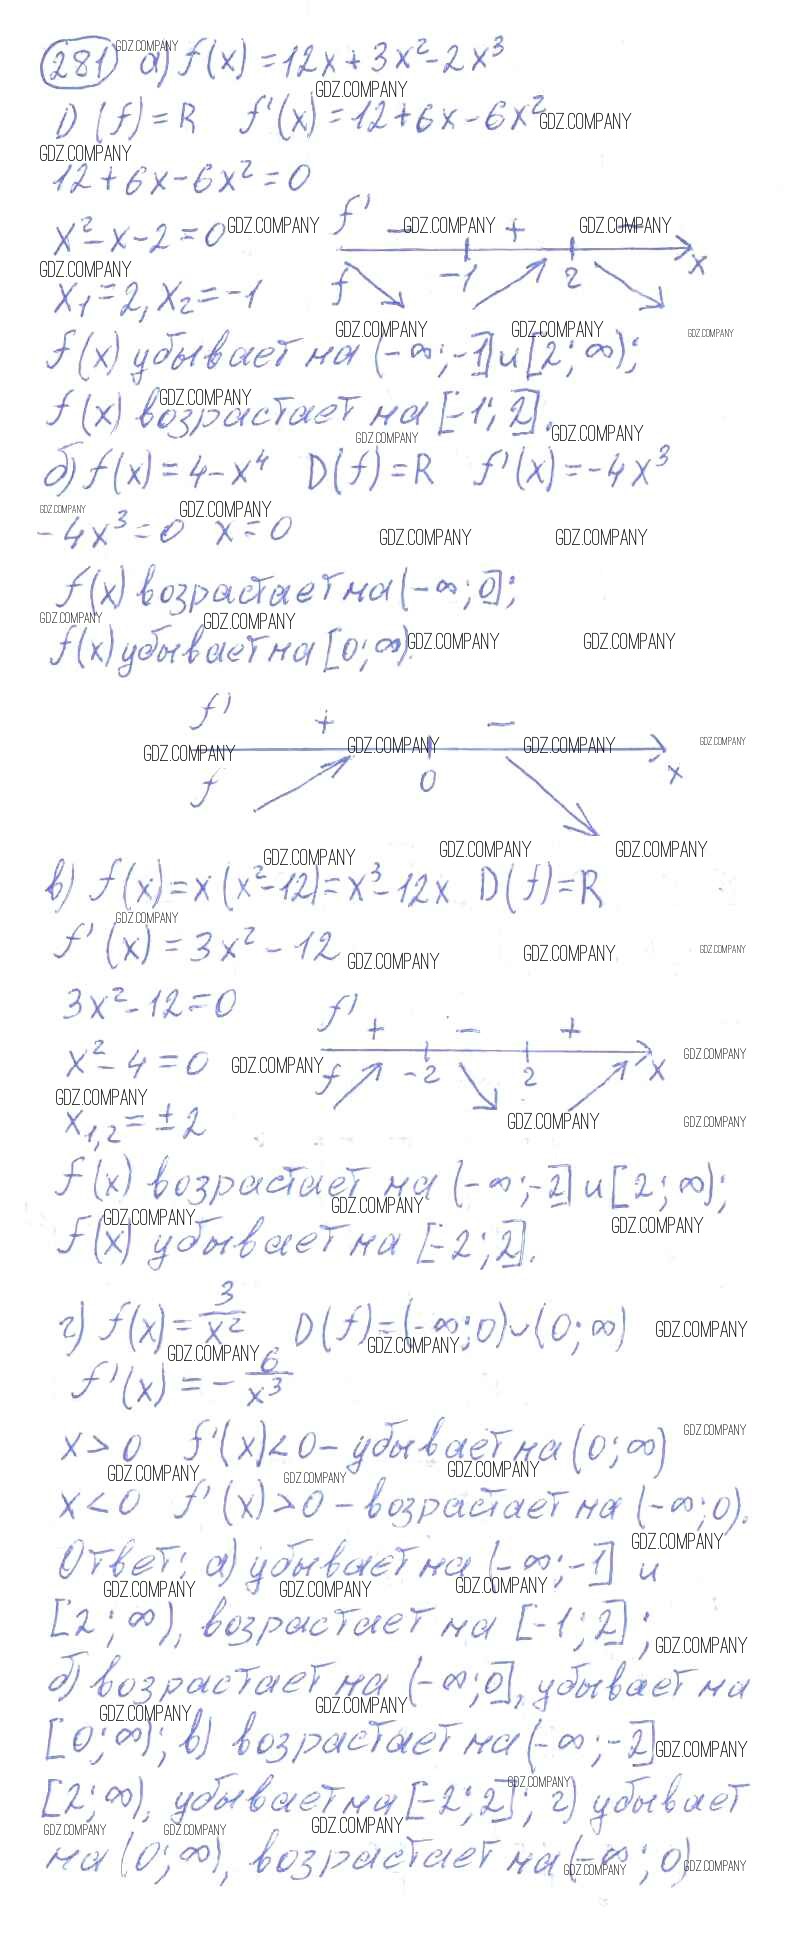 281 а) f(x) = 12x + 3x² - 2x³
D(f) = R f'(x) = 12 + 6x - 6x²
12 + 6x - 6x² = 0
x² - x - 2 = 0
f' - + -
-1 2 x
f
x₁ = 2, x₂ = -1
f(x) убывает на (-∞; -1] и [2; ∞);
f(x) возрастает на [-1; 2].
б) f(x) = 4 - x⁴ D(f) = R f'(x) = -4x³
-4x³ = 0 x = 0
f(x) возрастает на (-∞; 0];
f(x) убывает на [0; ∞).
f' + -
f 0 x
в) f(x) = x(x² - 12) = x³ - 12x D(f) = R
f'(x) = 3x² - 12
3x² - 12 = 0
x² - 4 = 0
f' + - +
f -2 2 x
x₁,₂ = ± 2
f(x) возрастает на (-∞; -2] и [2; ∞);
f(x) убывает на [-2; 2].
г) f(x) = 3/x² D(f) = (-∞; 0) ∪ (0; ∞)
f'(x) = - 6/x³
x > 0 f'(x) < 0 - убывает на (0; ∞)
x < 0 f'(x) > 0 - возрастает на (-∞; 0).
Ответ: а) убывает на (-∞; -1] и
[2; ∞), возрастает на [-1; 2];
б) возрастает на (-∞; 0], убывает на
[0; ∞); в) возрастает на (-∞; -2]
[2; ∞), убывает на [-2; 2]; г) убывает
на (0; ∞), возрастает на (-∞; 0)
GDZ.COMPANY